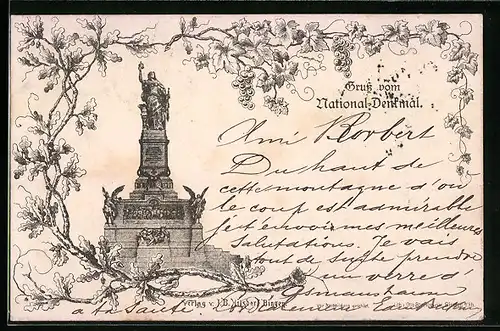 Gruß vom
National-Denkmal.
Ami Robert
Du haut de
cette montagne d'où
le coup est admirable
je t'envoie mes meilleures
salutations. Je vais
tout de suite prendre
un verre d'
Asmanshausen
à ta santé.
Verlag v. J.B. Bingen